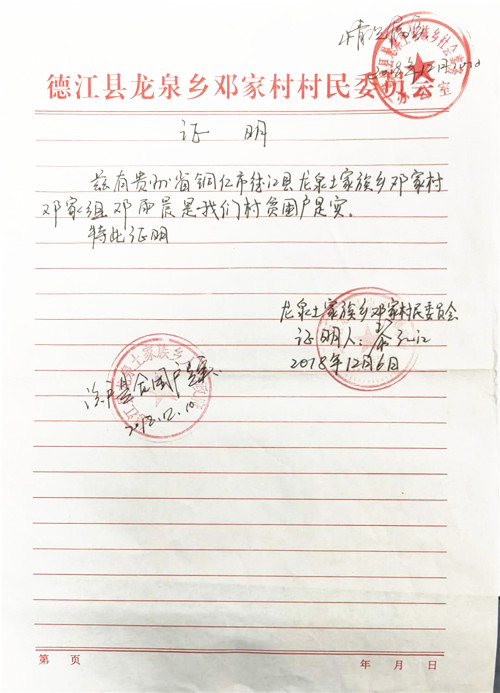 情况属实
2018年12月10日
德江县龙泉乡邓家村村民委员会
办公室
证 明
兹有贵州省铜仁市德江县龙泉土家族乡邓家村
邓家组邓雨晨是我们村贫困户是实。
特此证明
龙泉土家族乡邓家村民委员会
证明人：
2018年12月6日
该户是贫困户属实
2018.12.10
第 页
年 月 日